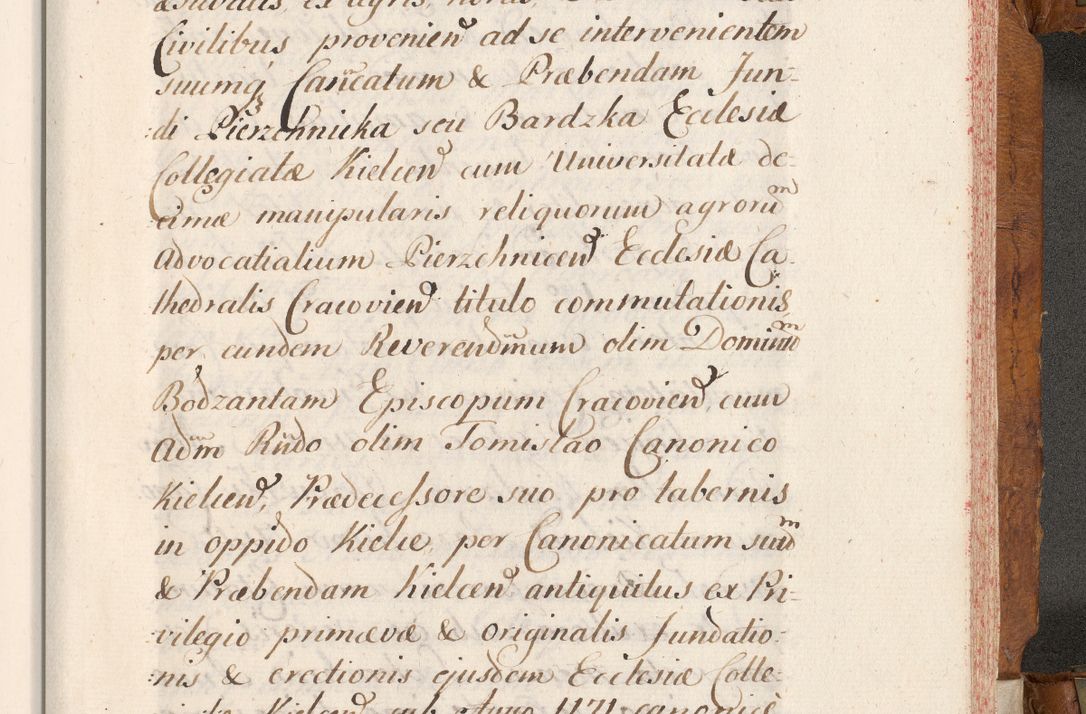 Civilibus provenien̄ ad se intervenientem
suumq́ʒ Can̄catum & Præbendam Fun-
:di Pierzchnicka seu Bardzka Ecclesiæ
Collegiatæ Kielcen̄ cum Universitatæ de-
:cimæ manipularis reliquorum agrorum̄
Advocatialium Pierzchnicen̄ Ecclesiæ Ca-
thedralis Cracovien̄ titulo commutationis
per eundem Reverendm̄um olim Dominum̄
Bodzantam Episcopum Cracovien̄, cum
Adm̄ Rn̄do olim Tomislao Canonico
Kielcen̄, Prædecessore suo pro tabernis
in oppido Kielce, per Canonicatum suum̄
& Præbendam Kielcen̄ antiquitus ex Pri-
:vilegio primævæ & originalis Fundatio-
:nis & erectionis ejusdem Ecclesiæ Colle-
Kielcen̄ sub Anno 1171 canonicè